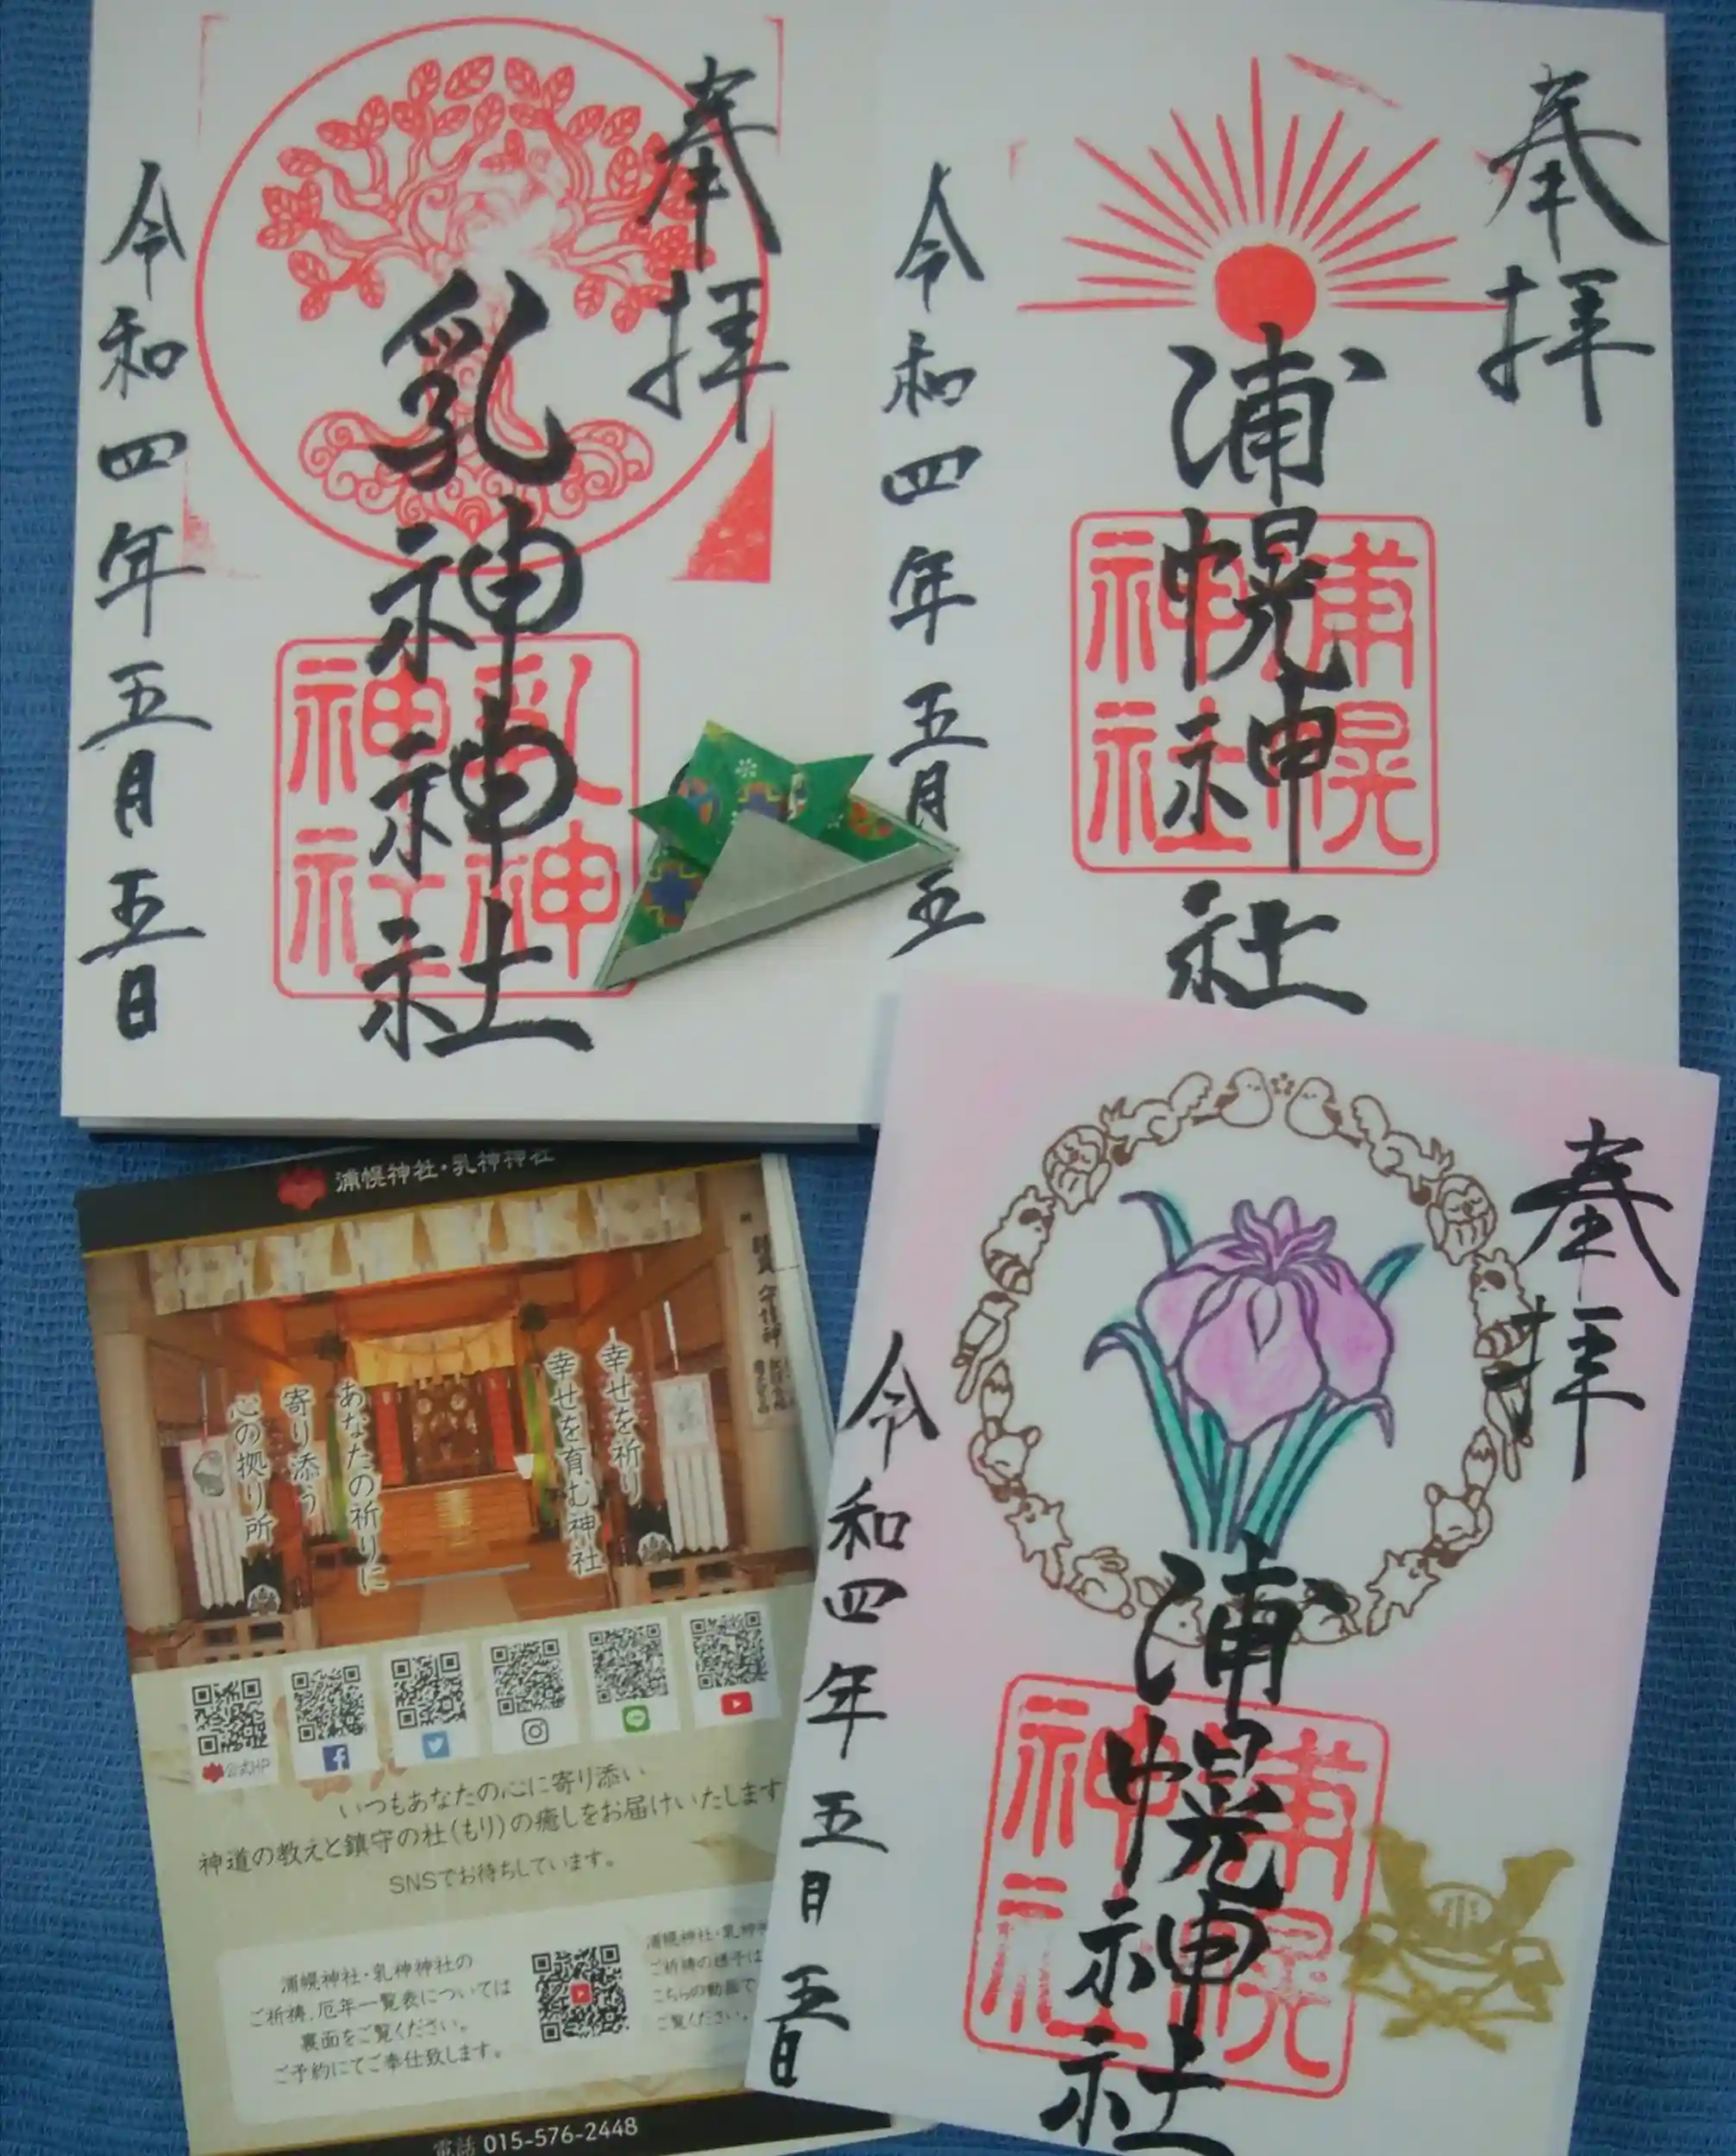 奉拝
浦幌神社
浦幌
神社
令和四年五月五
奉拝
乳神神社
乳神
神社
令和四年五月五日
奉拝
浦幌神社
浦幌
神社
令和四年五月五日
浦幌神社・乳神神社
幸せを祈り
幸せを育む神社
あなたの祈りに
寄り添う
心の拠り所
公式HP
LINE
いつもあなたの心に寄り添い
神道の教えと鎮守の杜(もり)の癒しをお届けいたします
SNSでお待ちしています。
浦幌神社・乳神神社の
ご祈祷、厄年一覧表については
裏面をご覧ください。
ご予約にてご奉仕致します。
浦幌神社・乳神神
ご祈祷の様子は
こちらの動画で
ご覧ください。
電話 015-576-2448